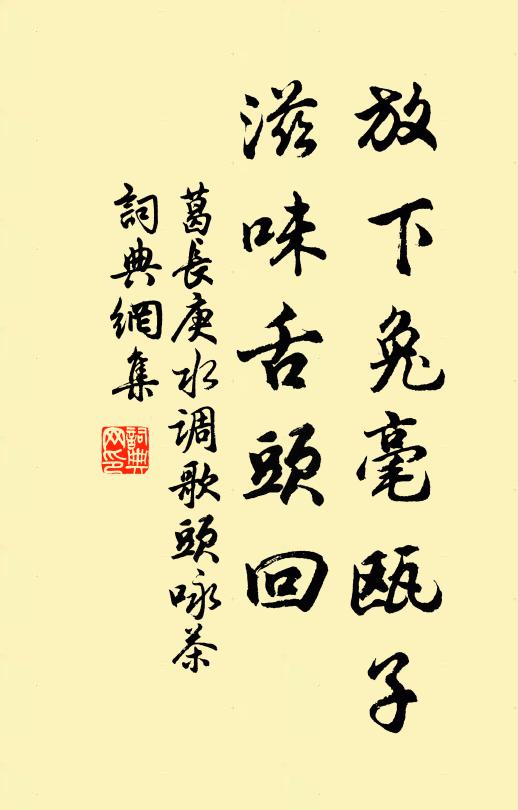 放下兔毫瓯子
滋味舌頭回
葛長庚水调歌頭咏茶
詞典網集
詞典网印